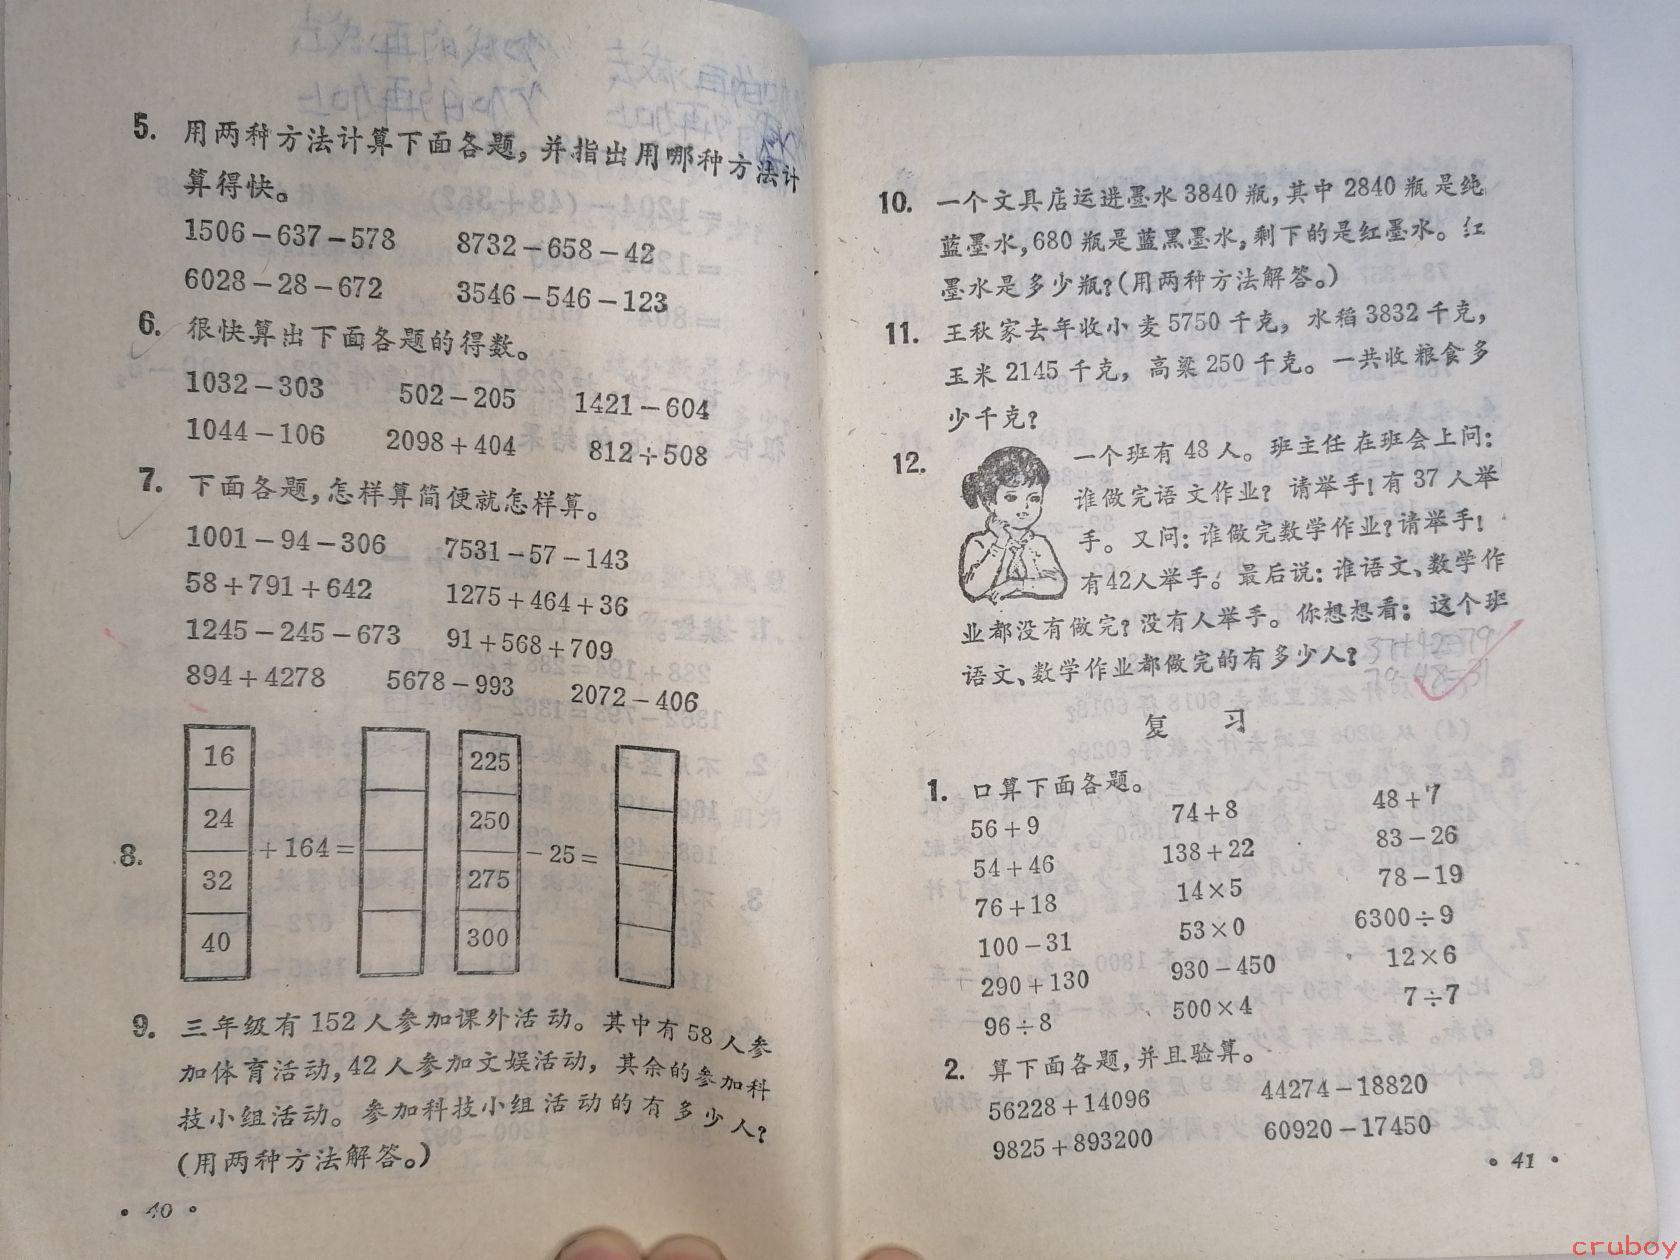 5. 用两种方法计算下面各题，并指出用哪种方法计
算得快。
1506－637－578 8732－658－42
6028－28－672 3546－546－123
6. 很快算出下面各题的得数。
1032－303 502－205 1421－604
1044－106 2098＋404 812＋508
7. 下面各题，怎样算简便就怎样算。
1001－94－306 7531－57－143
58＋791＋642 1275＋464＋36
1245－245－673 91＋568＋709
894＋4278 5678－993 2072－406
8.
16
24
32
40
＋164＝
225
250
275
300
－25＝
9. 三年级有152人参加课外活动。其中有58人参
加体育活动，42人参加文娱活动，其余的参加科
技小组活动。参加科技小组活动的有多少人？
（用两种方法解答。）
• 40 •
10. 一个文具店运进墨水3840瓶，其中2840瓶是纯
蓝墨水，680瓶是蓝黑墨水，剩下的是红墨水。红
墨水是多少瓶？（用两种方法解答。）
11. 王秋家去年收小麦5750千克，水稻3832千克，
玉米2145千克，高粱250千克。一共收粮食多
少千克？
12. 一个班有48人。班主任在班会上问：
谁做完语文作业？请举手！有37人举
手。又问：谁做完数学作业？请举手！
有42人举手。最后说：谁语文、数学作
业都没有做完？没有人举手。你想想看：这个班
语文、数学作业都做完的有多少人？
37+42=79
79-48=31
复 习
1. 口算下面各题。
56＋9 74＋8 48＋7
54＋46 138＋22 83－26
76＋18 14×5 78－19
100－31 53×0 6300÷9
290＋130 930－450 12×6
96÷8 500×4 7÷7
2. 算下面各题，并且验算。
56228＋14096 44274－18820
9825＋893200 60920－17450
• 41 •
cruboy